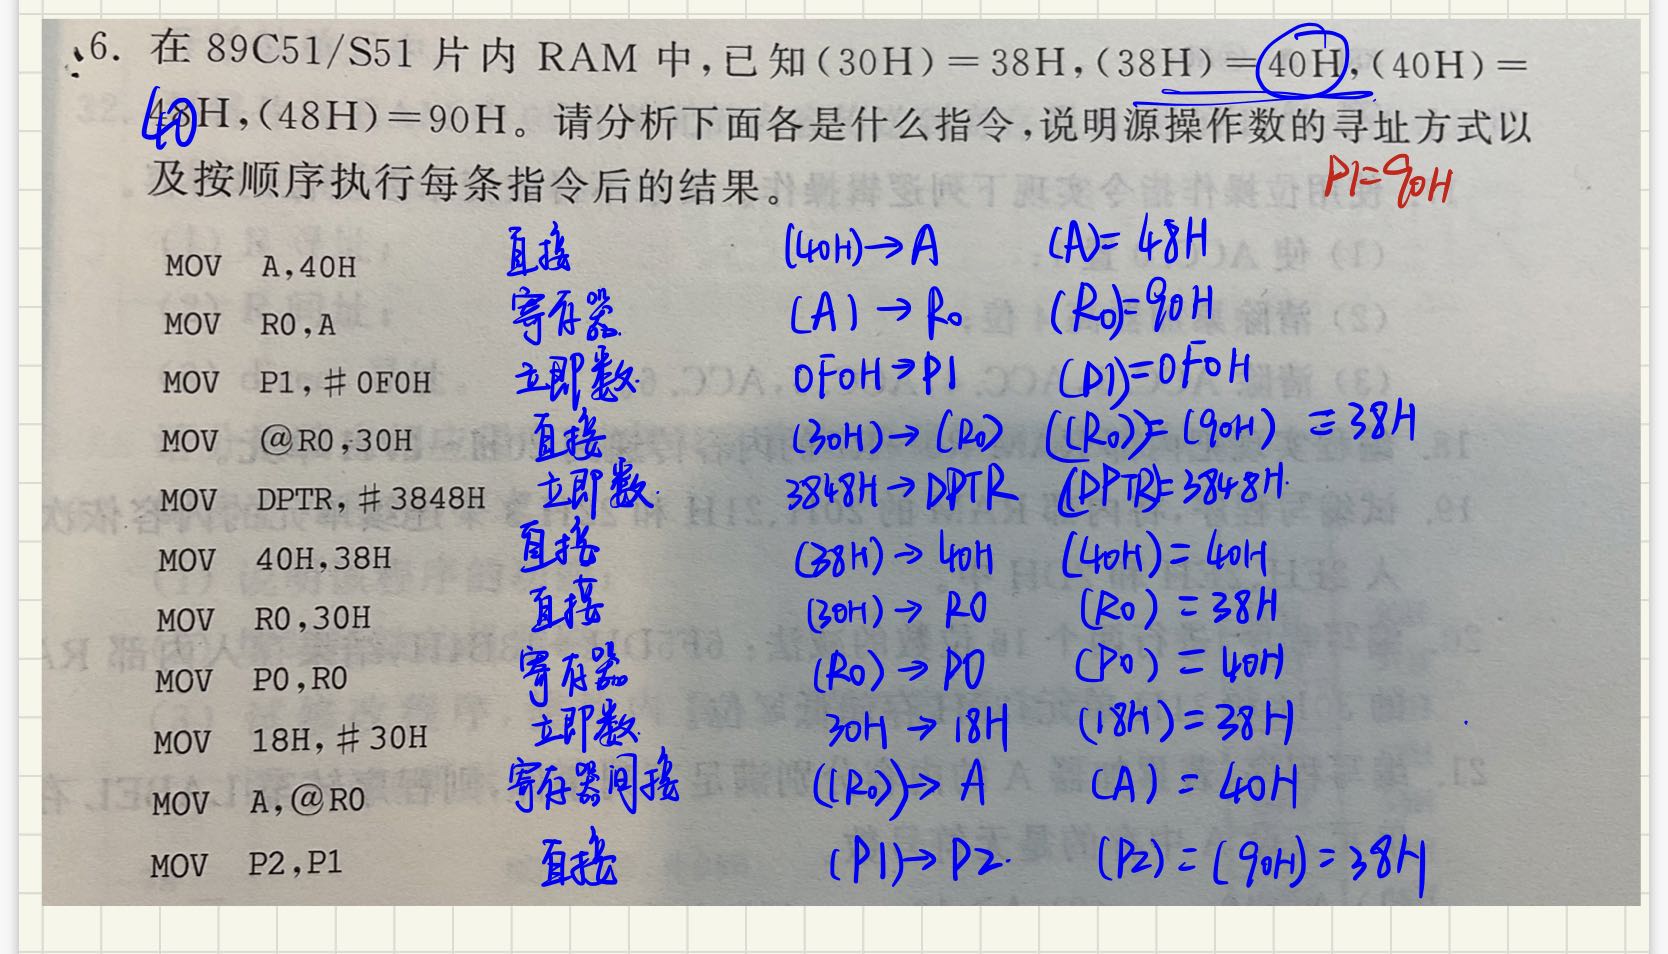 6. 在 89C51/S51 片内 RAM 中,已知(30H)=38H,(38H)=40H,(40H)=
48H,(48H)=90H。请分析下面各是什么指令,说明源操作数的寻址方式以
40
及按顺序执行每条指令后的结果。 P1=90H
MOV A,40H 直接 (40H)→A (A)=48H
MOV R0,A 寄存器 (A)→R0 (R0)=90H
MOV P1,#0F0H 立即数 0F0H→P1 (P1)=0F0H
MOV @R0,30H 直接 (30H)→(R0) ((R0))=(90H)=38H
MOV DPTR,#3848H 立即数 3848H→DPTR (DPTR)=3848H
MOV 40H,38H 直接 (38H)→40H (40H)=40H
MOV R0,30H 直接 (30H)→R0 (R0)=38H
MOV P0,R0 寄存器 (R0)→P0 (P0)=40H
MOV 18H,#30H 立即数 30H→18H (18H)=38H
MOV A,@R0 寄存器间接 ((R0))→A (A)=40H
MOV P2,P1 直接 (P1)→P2 (P2)=(90H)=38H